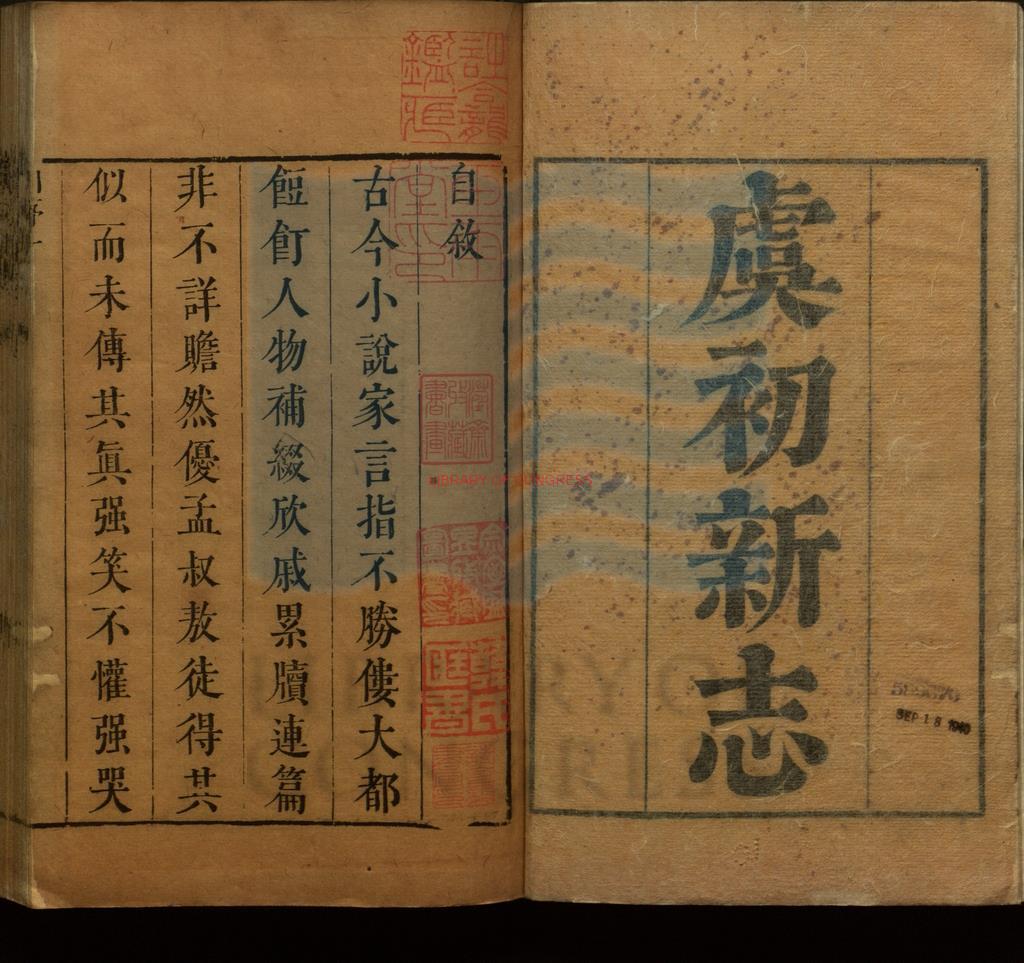 虞初新志
自敘
古今小說家言指不勝僂大都
餖飣人物補綴欣戚累牘連篇
非不詳贍然優孟叔敖徒得其
似而未傳其眞强笑不懽强哭
LIBRARY OF CONGRESS
SEP 18 1940